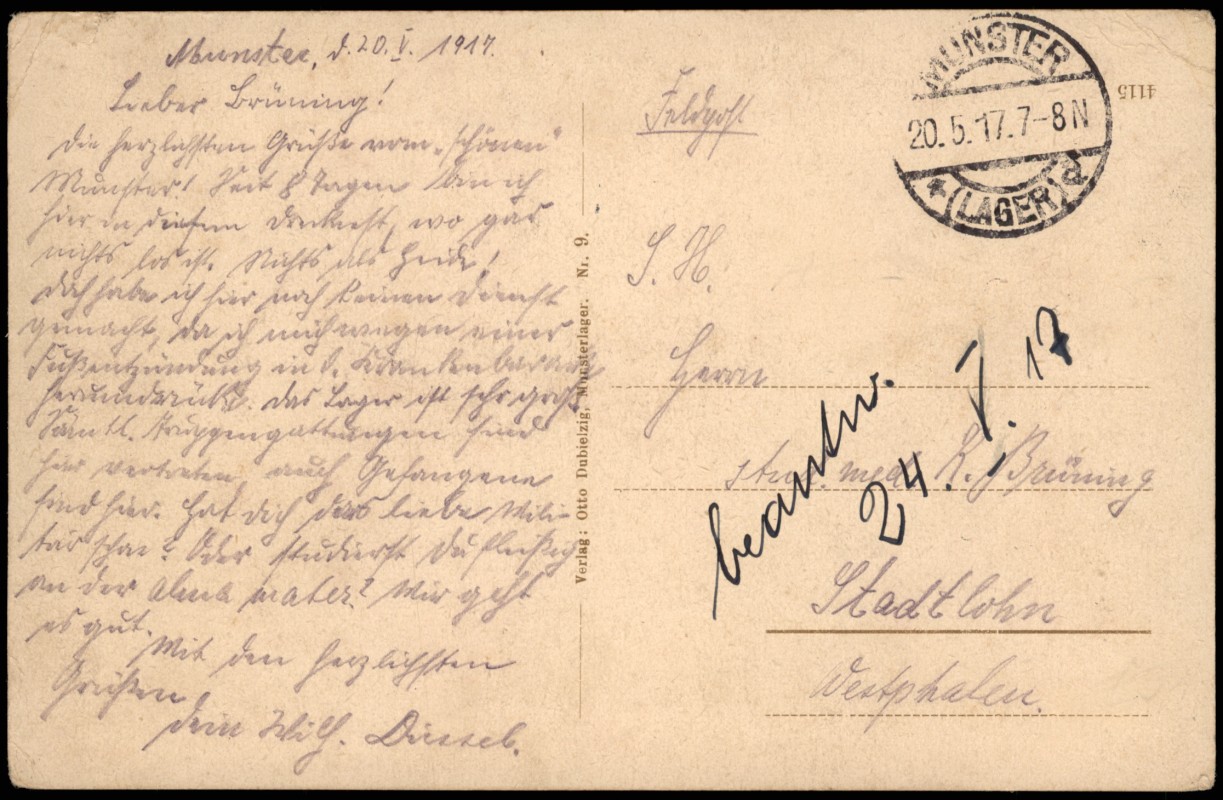 Munster, d. 20. V. 1917.
Lieber Brüning!
Die herzlichsten Grüße vom „schönen"
Munster! Seit 8 Tagen bin ich
hier in diesem Drecknest, wo gar
nichts los ist. Nichts als Heide!
Doch habe ich hier noch keinen Dienst
gemacht, da ich mich wegen einer
Fußentzündung in d. Krankenbaracke
herumdrücke. Das Lager ist sehr groß.
Sämtl. Truppengattungen sind
hier vertreten, auch Gefangene
sind hier. Hat Dich das liebe Mili-
tär schon? Oder studierst Du fleißig
an der alma mater? Mir geht
es gut.
Mit den herzlichsten
Grüßen
Dein Wilh.
Verlag: Otto Dubielzig, Munsterlager. Nr. 9.
Feldpost
MUNSTER
20.5.17.7-8N
* (LAGER) d
4115
S. H.
Herrn
stud. med. K. Brüning
Stadtlohn
Westphalen.
beantw.
24. V. 17